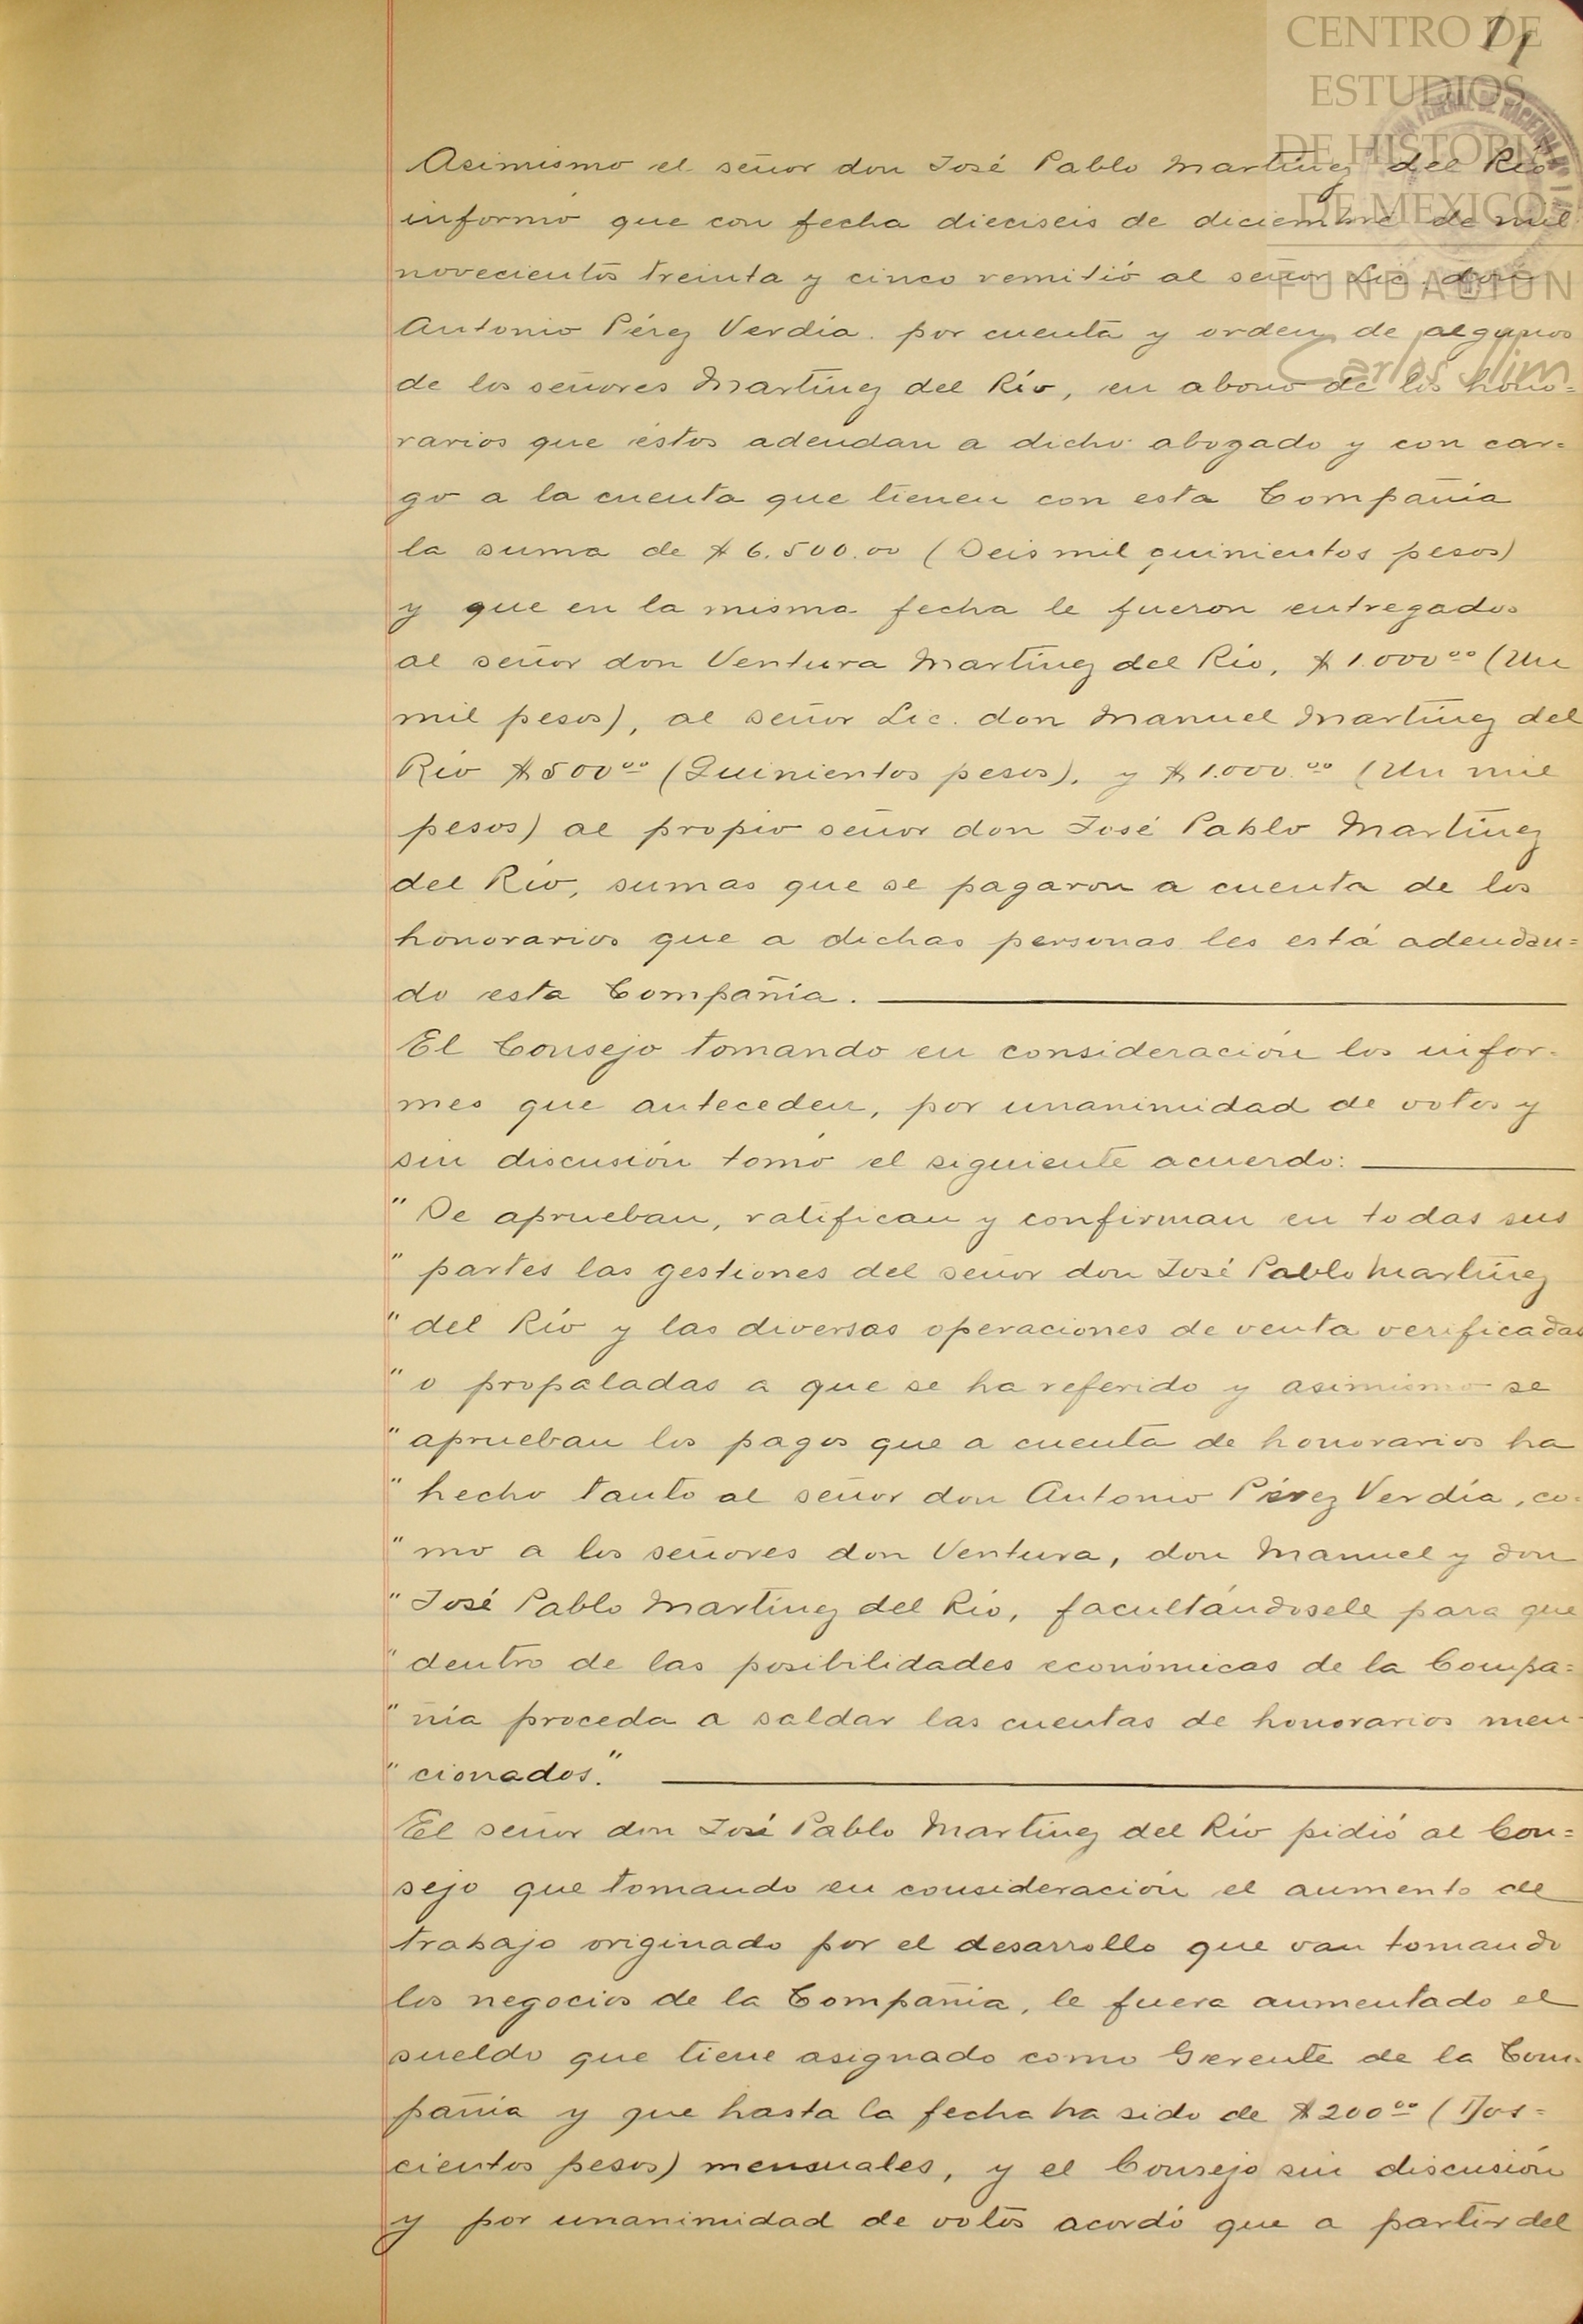 11
CENTRO DE
ESTUDIOS
DE HISTORIA
DE MEXICO
FUNDACIÓN
Carlos Slim
Asimismo el señor don José Pablo Martínez del Río
informó que con fecha dieciseis de diciembre de mil
novecientos treinta y cinco remitió al señor Lic. don
Antonio Pérez Verdía. por cuenta y orden de algunos
de los señores Martínez del Río, en abono de los hono=
rarios que éstos adeudan a dicho abogado y con car=
go a la cuenta que tienen con esta Compañía
la suma de $ 6.500.00 (Seis mil quinientos pesos)
y que en la misma fecha le fueron entregados
al señor don Ventura Martínez del Río, $ 1.000.00 (Un
mil pesos), al señor Lic. don Manuel Martínez del
Río $ 500.00 (Quinientos pesos), y $ 1.000.00 (Un mil
pesos) al propio señor don José Pablo Martínez
del Río, sumas que se pagaron a cuenta de los
honorarios que a dichas personas les está adeudan=
do esta Compañía.
El Consejo tomando en consideración los infor-
mes que anteceden, por unanimidad de votos y
sin discusión tomó el siguiente acuerdo:
" Se aprueban, ratifican y confirman en todas sus
" partes las gestiones del señor don José Pablo Martínez
" del Río y las diversas operaciones de venta verificadas
" o propaladas a que se ha referido y asimismo se
" aprueban los pagos que a cuenta de honorarios ha
" hecho tanto al señor don Antonio Pérez Verdía, co-
" mo a los señores don Ventura, don Manuel y don
" José Pablo Martínez del Río, facultándosele para que
" dentro de las posibilidades económicas de la Compa=
" ñía proceda a saldar las cuentas de honorarios men-
" cionados."
El señor don José Pablo Martínez del Río pidió al Con=
sejo que tomando en consideración el aumento de
trabajo originado por el desarrollo que van tomando
los negocios de la Compañía, le fuera aumentado el
sueldo que tiene asignado como Gerente de la Com-
pañía y que hasta la fecha ha sido de $ 200.00 (Dos=
cientos pesos) mensuales, y el Consejo sin discusión
y por unanimidad de votos acordó que a partir del